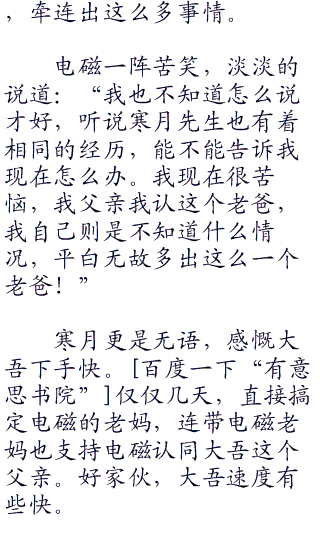 ，牵连出这么多事情。
电磁一阵苦笑，淡淡的
说道：“我也不知道怎么说
才好，听说寒月先生也有着
相同的经历，能不能告诉我
现在怎么办。我现在很苦
恼，我父亲我认这个老爸，
我自己则是不知道什么情
况，平白无故多出这么一个
老爸！”
寒月更是无语，感慨大
吾下手快。[百度一下“有意
思书院”]仅仅几天，直接搞
定电磁的老妈，连带电磁老
妈也支持电磁认同大吾这个
父亲。好家伙，大吾速度有
些快。